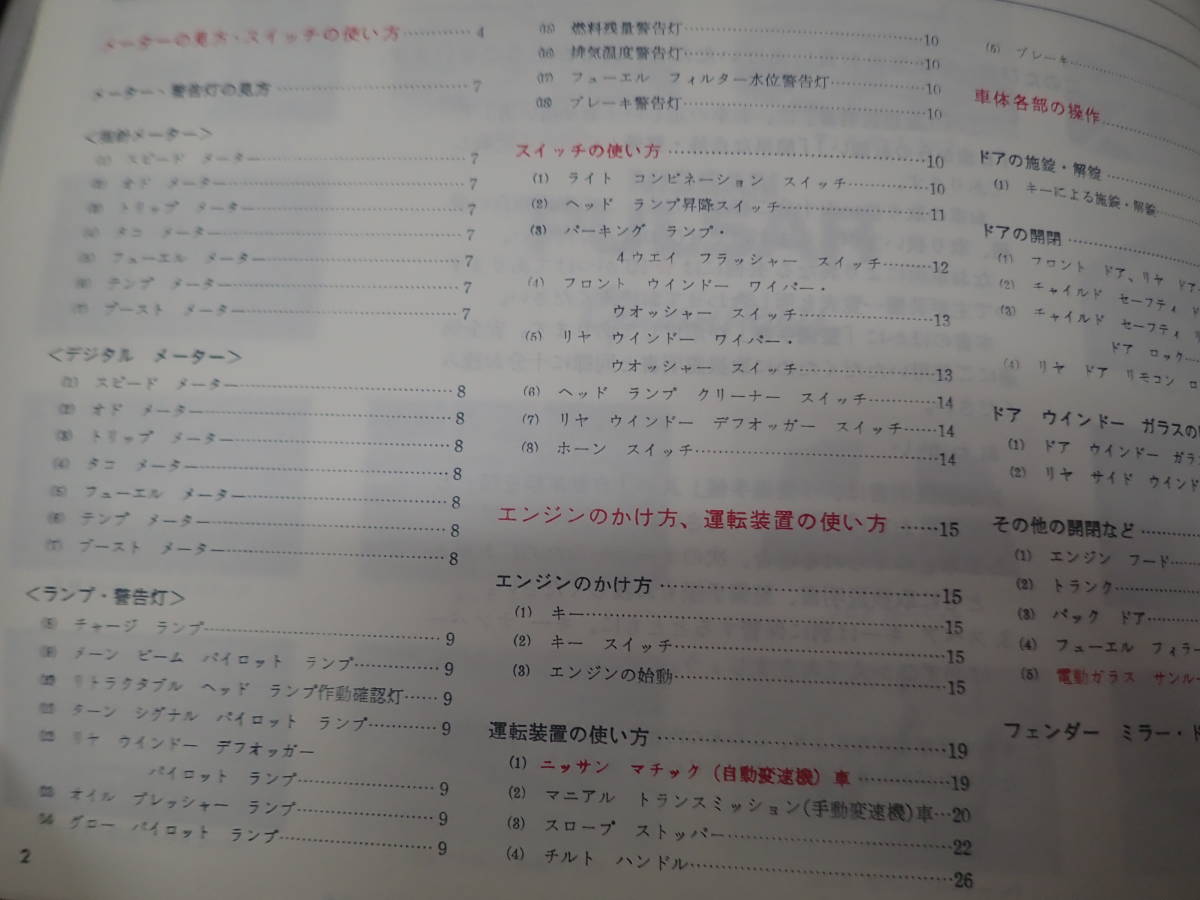 メーターの見方・スイッチの使い方…………4
メーター・警告灯の見方……………………7
<指針メーター>
(1) スピード メーター……………………7
(2) オド メーター……………………7
(3) トリップ メーター……………………7
(4) タコ メーター……………………7
(5) フューエル メーター……………………7
(6) テンプ メーター……………………7
(7) ブースト メーター……………………7
<デジタル メーター>
(1) スピード メーター……………………8
(2) オド メーター……………………8
(3) トリップ メーター……………………8
(4) タコ メーター……………………8
(5) フューエル メーター……………………8
(6) テンプ メーター……………………8
(7) ブースト メーター……………………8
<ランプ・警告灯>
(8) チャージ ランプ……………………9
(9) メーン ビーム パイロット ランプ…………9
(10) リトラクタブル ヘッド ランプ作動確認灯……9
(11) ターン シグナル パイロット ランプ…………9
(12) リヤ ウインドー デフオッガー
パイロット ランプ……………9
(13) オイル プレッシャー ランプ……………9
(14) グロー パイロット ランプ……………9
2
(15) 燃料残量警告灯……………………10
(16) 排気温度警告灯……………………10
(17) フューエル フィルター水位警告灯…………10
(18) ブレーキ警告灯……………………10
スイッチの使い方……………………10
(1) ライト コンビネーション スイッチ…………10
(2) ヘッド ランプ昇降スイッチ……………11
(3) パーキング ランプ・
4ウエイ フラッシャー スイッチ………12
(4) フロント ウインドー ワイパー・
ウオッシャー スイッチ……………13
(5) リヤ ウインドー ワイパー・
ウオッシャー スイッチ……………13
(6) ヘッド ランプ クリーナー スイッチ…………14
(7) リヤ ウインドー デフオッガー スイッチ……14
(8) ホーン スイッチ……………………14
エンジンのかけ方、運転装置の使い方……15
エンジンのかけ方……………………15
(1) キー……………………15
(2) キー スイッチ……………………15
(3) エンジンの始動……………………15
運転装置の使い方……………………19
(1) ニッサン マチック(自動変速機)車…………19
(2) マニアル トランスミッション(手動変速機)車…20
(3) スロープ ストッパー……………………22
(4) チルト ハンドル……………………26
(5) ブレーキ……………
車体各部の操作……………
ドアの施錠・解錠……………
(1) キーによる施錠・解錠……………
ドアの開閉……………
(1) フロント ドア、リヤ ドア
(2) チャイルド セーフティ
(3) チャイルド セーフティ
ドア ロック……
(4) リヤ ドア リモコン ロ
ドア ウインドー ガラスの
(1) ドア ウインドー ガラ
(2) リヤ サイド ウインド
その他の開閉など……………
(1) エンジン フード……
(2) トランク……………
(3) バック ドア………
(4) フューエル フィラー
(5) 電動ガラス サンルー
フェンダー ミラー・ド